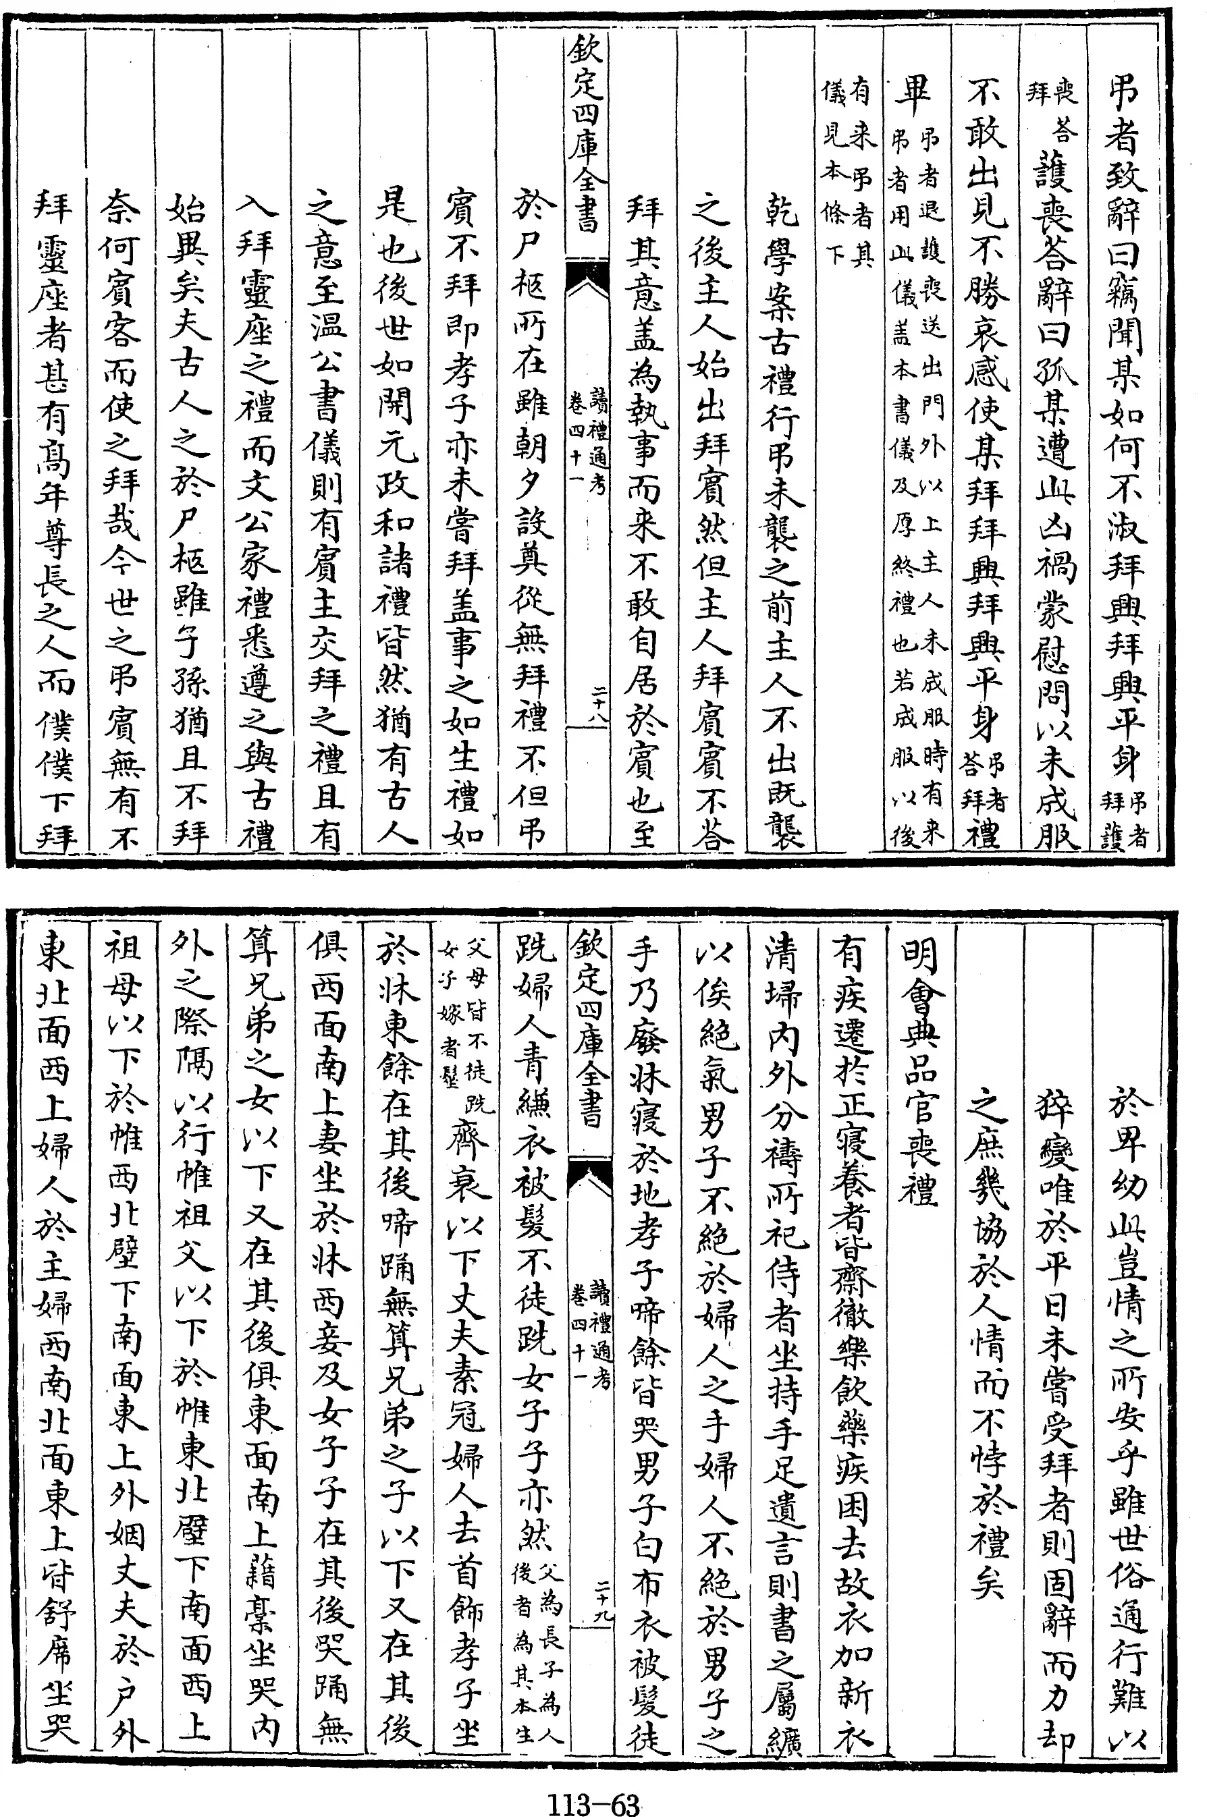 弔者致辭曰竊聞某如何不淑拜興拜興平身弔者拜護
喪答拜護喪答辭曰孤某遭此凶禍蒙慰問以未成服
不敢出見不勝哀感使某拜拜興拜興平身弔者答拜禮
畢弔者退護喪送出門外以上主人未成服時有来弔者用此儀蓋本書儀及厚終禮也若成服以後
有来弔者其儀見本條下
乾學案古禮行弔未襲之前主人不出既襲
之後主人始出拜賓然但主人拜賓賓不答
拜其意蓋為執事而来不敢自居於賓也至
欽定四庫全書
讀禮通考
卷四十一
二十八
於尸柩所在雖朝夕設奠從無拜禮不但弔
賓不拜即孝子亦未嘗拜蓋事之如生禮如
是也後世如開元政和諸禮皆然猶有古人
之意至溫公書儀則有賓主交拜之禮且有
入拜靈座之禮而文公家禮悉遵之與古禮
始異矣夫古人之於尸柩雖子孫猶且不拜
奈何賓客而使之拜哉今世之弔賓無有不
拜靈座者甚有高年尊長之人而僕僕下拜
於卑幼此豈情之所安乎雖世俗通行難以
猝變唯於平日未嘗受拜者則固辭而力却
之庶幾協於人情而不悖於禮矣
明會典品官喪禮
有疾遷於正寢養者皆齋徹樂飲藥疾困去故衣加新衣
清埽内外分禱所祀侍者坐持手足遺言則書之屬纊
以俟絕氣男子不絕於婦人之手婦人不絕於男子之
手乃廢牀寢於地孝子啼餘皆哭男子白布衣被髮徒
欽定四庫全書
讀禮通考
卷四十一
二十九
跣婦人青縑衣被髮不徒跣女子子亦然父為長子為人後者為其本生
父母皆不徒跣女子嫁者髽齊衰以下丈夫素冠婦人去首飾孝子坐
於牀東餘在其後啼踊無算兄弟之子以下又在其後
俱西面南上妻坐於牀西妾及女子子在其後哭踊無
算兄弟之女以下又在其後俱東面南上藉稾坐哭内
外之際隔以行帷祖父以下於帷東北壁下南面西上
祖母以下於帷西北壁下南面東上外姻丈夫於户外
東北面西上婦人於主婦西南北面東上皆舒席坐哭
113-63